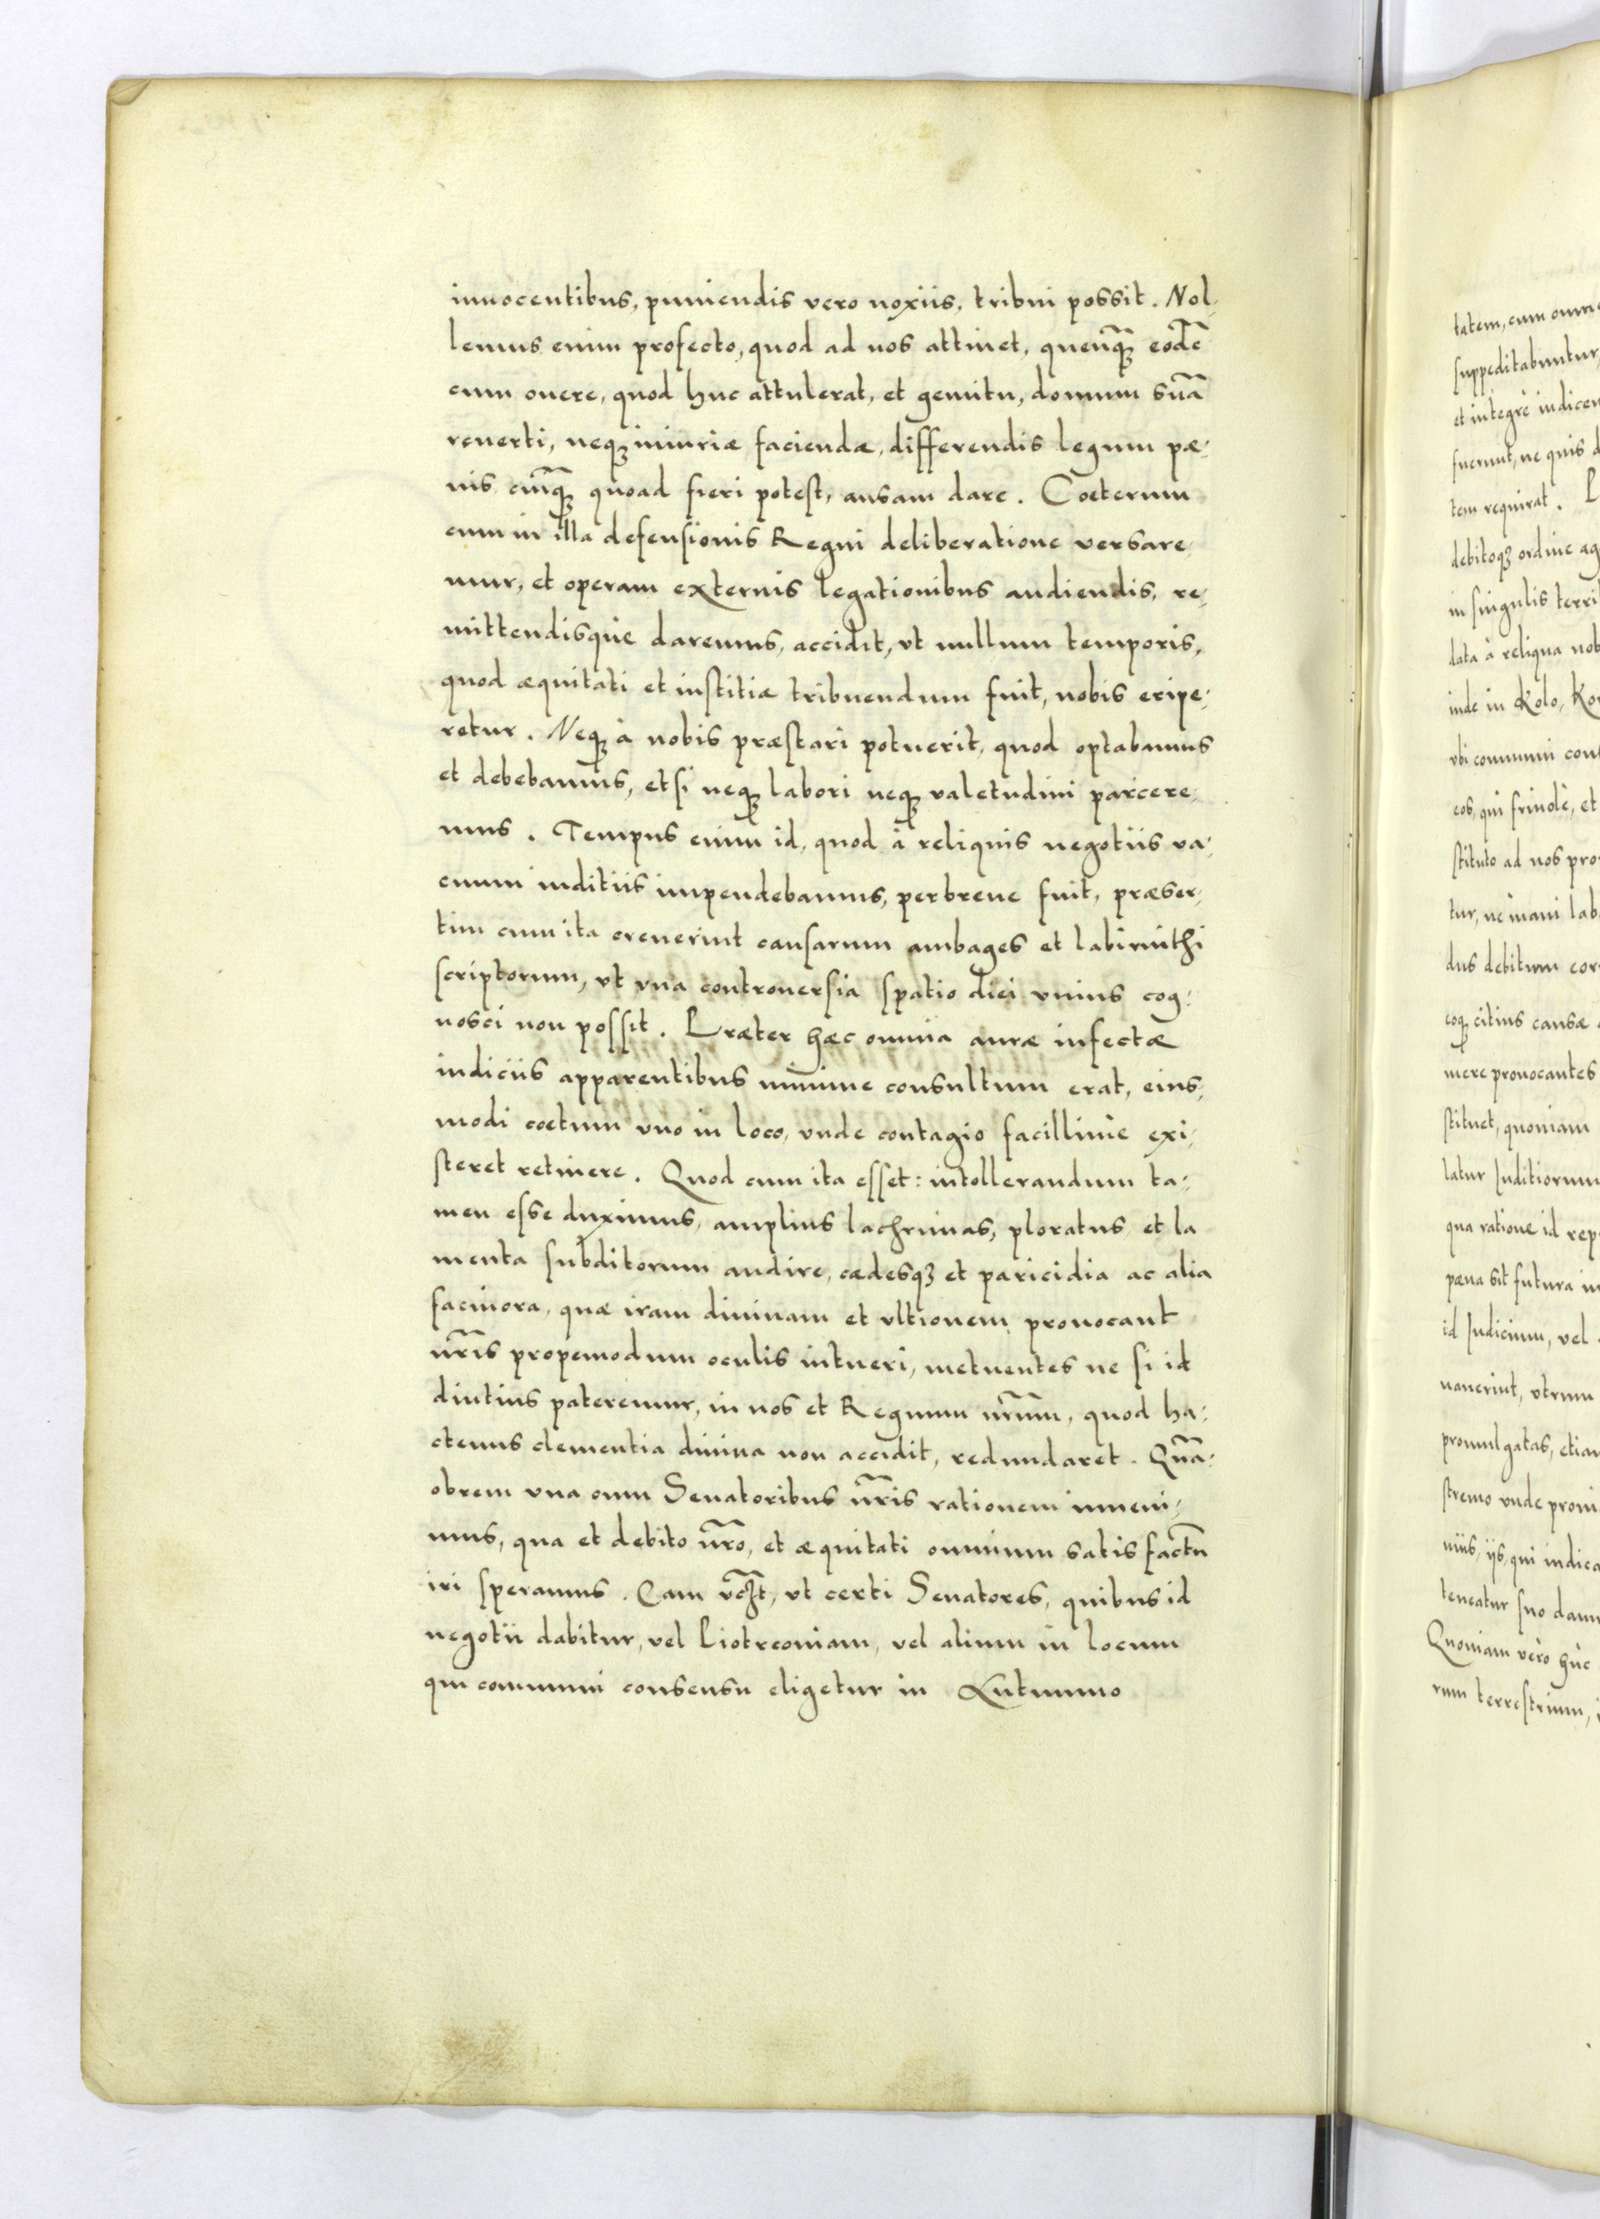 innocentibus, puniendis vero noxiis, tribui possit. Nol-
lemus enim profecto, quod ad nos attinet, quenq̃ȝ eodẽ
cum onere, quod huc attulerat, et gemitu, domum suã
reuerti, neqȝ iniuriæ faciendæ, differendis legum pæ-
nis cuiq̃ȝ quoad fieri potest, ansam dare. Cœterum
cum in illa defensionis Regni deliberatione versare-
mur, et operam externis legationibus audiendis, re-
mittendisque daremus, accidit, vt nullum temporis,
quod æquitati et iustitiæ tribuendum fuit, nobis eripe-
retur. Neqȝ à nobis præstari potuerit, quod optabamus
et debebamus, etsi neqȝ labori neqȝ valetudini parcere-
mus. Tempus enim id, quod à reliquis negotiis va-
cuum iuditiis impendebamus, perbreue fuit, præser-
tim cum ita creuerint causarum ambages et labirinthi
scriptorum, vt vna controuersia spatio diei vnius cog-
nosci non possit. Præter hæc omnia auræ infectæ
indiciis apparentibus minime consultum erat, eius-
modi cœtum vno in loco, vnde contagio facillimè exi-
steret retinere. Quod cum ita esset: intollerandum ta-
men esse duximus, amplius lachrimas, ploratus et la
menta subditorum audire, cædesqȝ et paricidia ac alia
facinora, quæ iram diuinam et vltionem prouocant
nr̃is propemodum oculis intueri, metuentes ne si id
diutius pateremur, in nos et Regnum nr̃um, quod ha-
ctenus clementia diuina non accidit, redundaret. Quã-
obrem vna cum Senatoribus nr̃is rationem inueni-
mus, qua et debito nr̃o, et æquitati omnium satis factũ
iri speramus. Eam vcȝt, vt certi Senatores, quibus id
negotii dabitur, vel Piotrcouiam, vel alium in locum
qui communi consensu eligetur in Autumno
tatem, cum omne
suppeditabuntur,
et integrè iudicen
fuerunt, ne quis d
tem requirat. P
debitoqȝ ordine ag
in singulis territ
data à reliqua nob
inde in Kolo, Kor
vbi communi con
eos, qui friuolè, et
stituto ad nos pro
tur, nè inani lab
dus debitum cor
coqȝ citius causæ
mere prouocantes
stituet, quoniam
latur Iuditiorum
qua ratione id rep
pæna sit futura in
id Iudicium, vel
uanerint, vtrum
promulgatas, etiam
stremo vnde proui
uiis, iis, qui iudica
teneatur suo damn
Quoniam verò hùc
rum terrestrium,